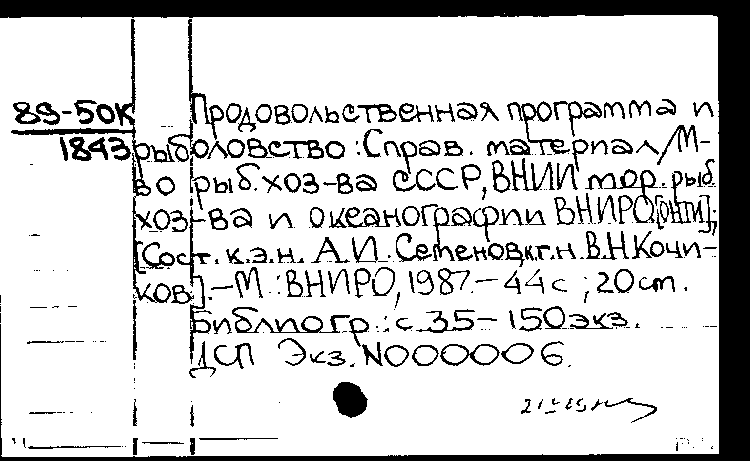 89-50К Продовольственная программа и
1843 рыболовство: Справ. материал/М-
во рыб.хоз-ва СССР, ВНИИ мор. рыб.
хоз-ва и океанографии ВНИРО[ОНТИ];
[Сост. к.э.н. А.И. Семенов, к.г.н В.Н Кочи-
ков].-М.: ВНИРО, 1987.-44с ; 20cm.
Библиогр.: с.35-150экз.
ДСП Экз. N000006.